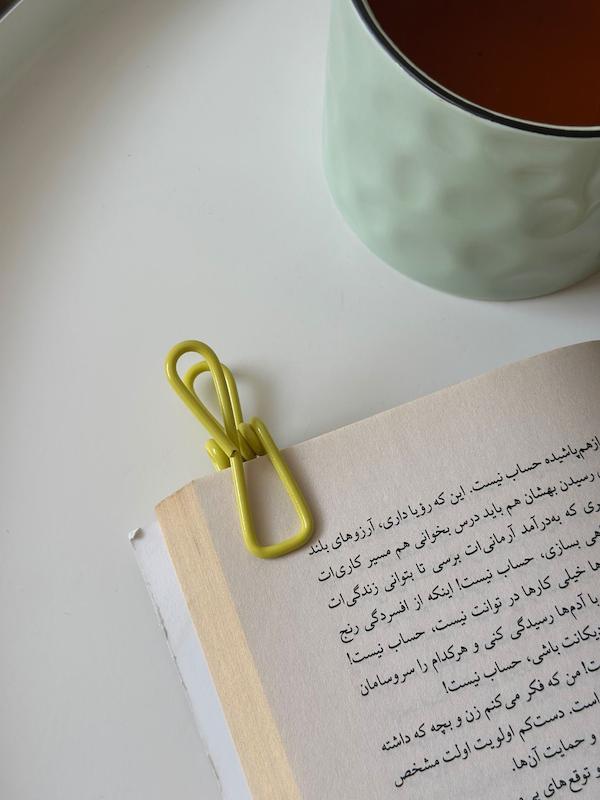 ازهم‌پاشیده حساب نیست. این که رؤیا داری، آرزوهای بلند
رسیدن بهشان هم باید درس بخوانی هم مسیر کاری‌ات
که به‌درآمد آرمانی‌ات برسی تا بتوانی زندگی‌ات
بسازی، حساب نیست! اینکه از افسردگی رنج
خیلی کارها در توانت نیست، حساب نیست!
با آدم‌ها رسیدگی کنی و هرکدام را سروسامان
باشی، حساب نیست!
من که فکر می‌کنم زن و بچه که داشته
است. دست‌کم اولویت اولت مشخص
و حمایت آن‌ها.
و توقع‌های